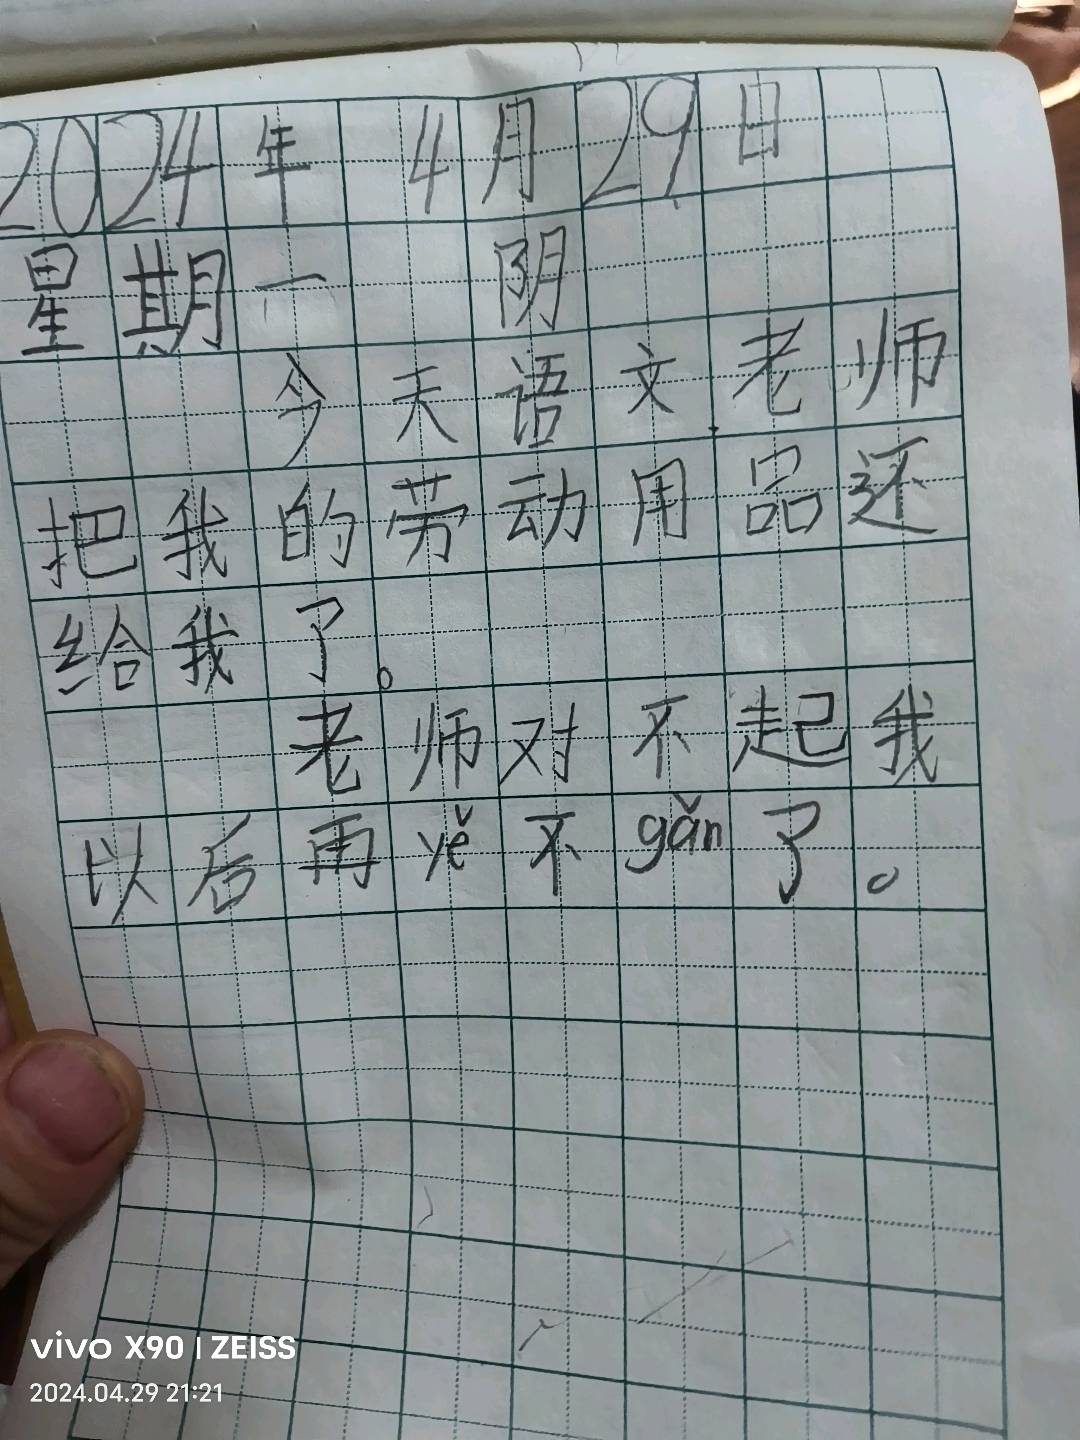 2024年 4月29日
星期一 阴
今天语文老师
把我的劳动用品还
给我了。
老师对不起我
以后再yě不gǎn了。
vivo X90 | ZEISS
2024.04.29 21:21